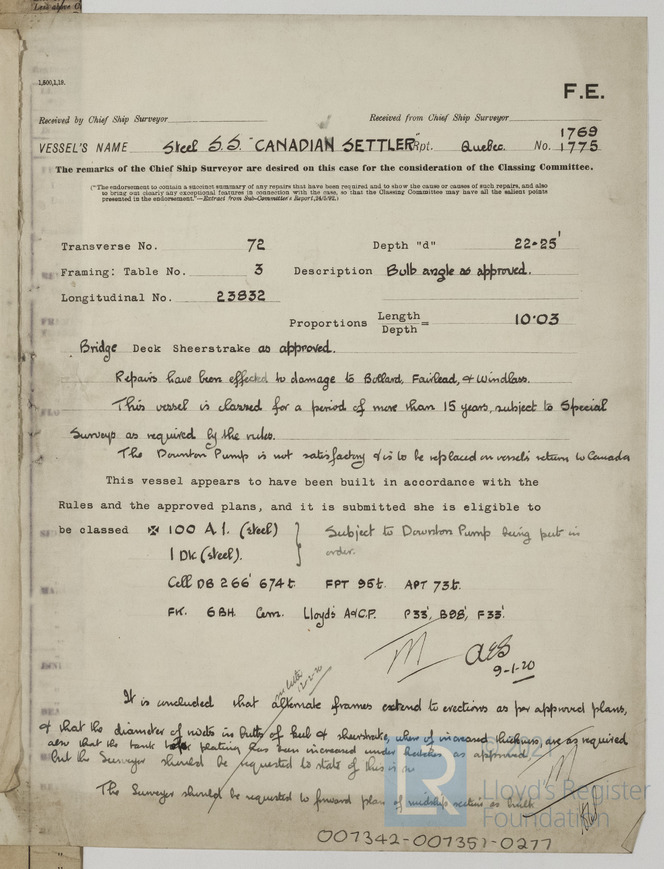 1,500,1,19.
F.E.
Received by Chief Ship Surveyor Received from Chief Ship Surveyor
1769
VESSEL'S NAME Steel S.S. "CANADIAN SETTLER" Rpt. Quebec. No. 1775
The remarks of the Chief Ship Surveyor are desired on this case for the consideration of the Classing Committee.
("The endorsement to contain a succinct summary of any repairs that have been required and to show the cause or causes of such repairs, and also
to bring out clearly any exceptional features in connection with the case, so that the Classing Committee may have all the salient points
presented in the endorsement."—Extract from Sub-Committee's Report, 24/5/92.)
Transverse No. 72 Depth "d" 22.25'
Framing: Table No. 3 Description Bulb angle as approved.
Longitudinal No. 23832
Proportions Length
Depth = 10.03
Bridge Deck Sheerstrake as approved.
Repairs have been effected to damage to Bollard, Fairlead, & Windlass.
This vessel is classed for a period of more than 15 years, subject to Special
Surveys as required by the rules.
The Downton Pump is not satisfactory & is to be replaced on vessel's return to Canada
This vessel appears to have been built in accordance with the
Rules and the approved plans, and it is submitted she is eligible to
be classed ✠ 100 A.1. (steel) } Subject to Downton Pump being put in
1 Dk (steel). order.
Cell DB 266' 674t. FPT 95t. APT 73t.
FK. 6BH. Cem. Lloyd's A&CP. P33', B98', F33'.
9-1-20
12-2-20
It is concluded that alternate frames extend to erections as per approved plans,
& that the diameter of rivets in butts of keel & sheerstrake, where of increased thickness, are as required
also that the tank top plating has been increased under hatches as approved
but the Surveyor should be requested to state if this is so
The Surveyor should be requested to forward plan of midship section as built
© 2021
LR
Lloyd's Register
Foundation
007342-007351-0277